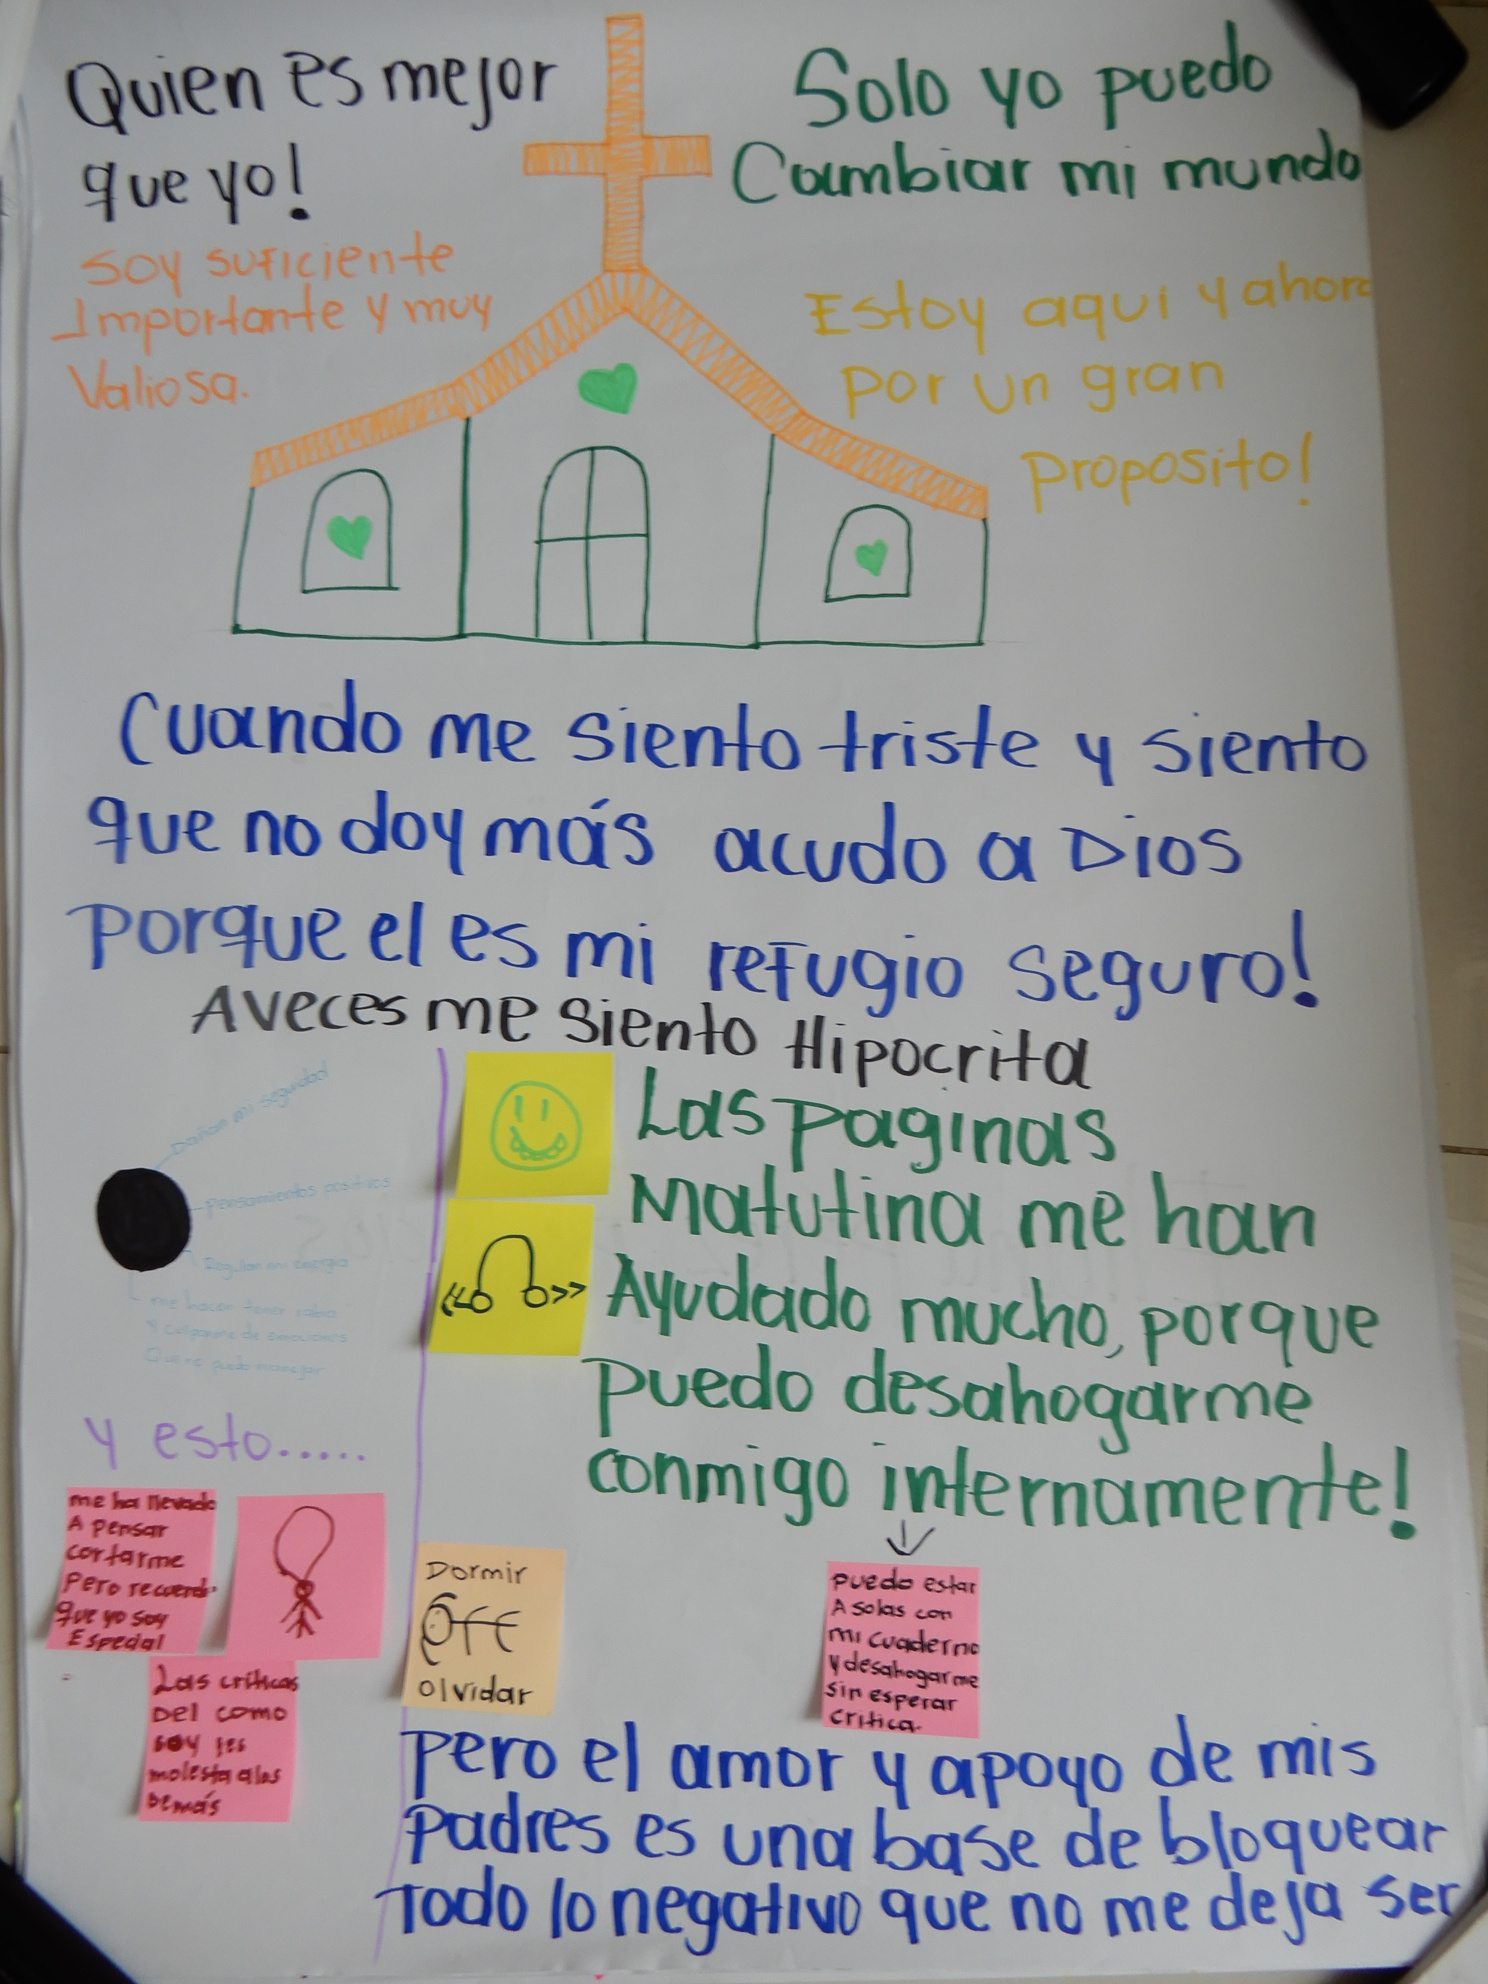 Quien es mejor
que yo!
Solo yo puedo
Cambiar mi mundo
Soy suficiente
Importante y muy
Valiosa.
Estoy aqui y ahora
por un gran
proposito!
Cuando me siento triste y siento
que no doy más acudo a Dios
Porque el es mi refugio seguro!
Aveces me siento Hipocrita
Dañan mi seguridad
pensamientos positivos
Regulan mi energia
me hacen tener rabia
y culparme de emociones
Que no puedo manejar
y esto......
me ha llevado
A pensar
cortarme
Pero recuerdo
que yo soy
Especial
Las criticas
Del como
soy les
molesta a los
Demás
Las paginas
Matutina me han
Ayudado mucho, porque
puedo desahogarme
conmigo internamente!
Dormir
Off
olvidar
puedo estar
A solas con
mi cuaderno
y desahogarme
sin esperar
critica.
pero el amor y apoyo de mis
padres es una base de bloquear
todo lo negativo que no me deja ser